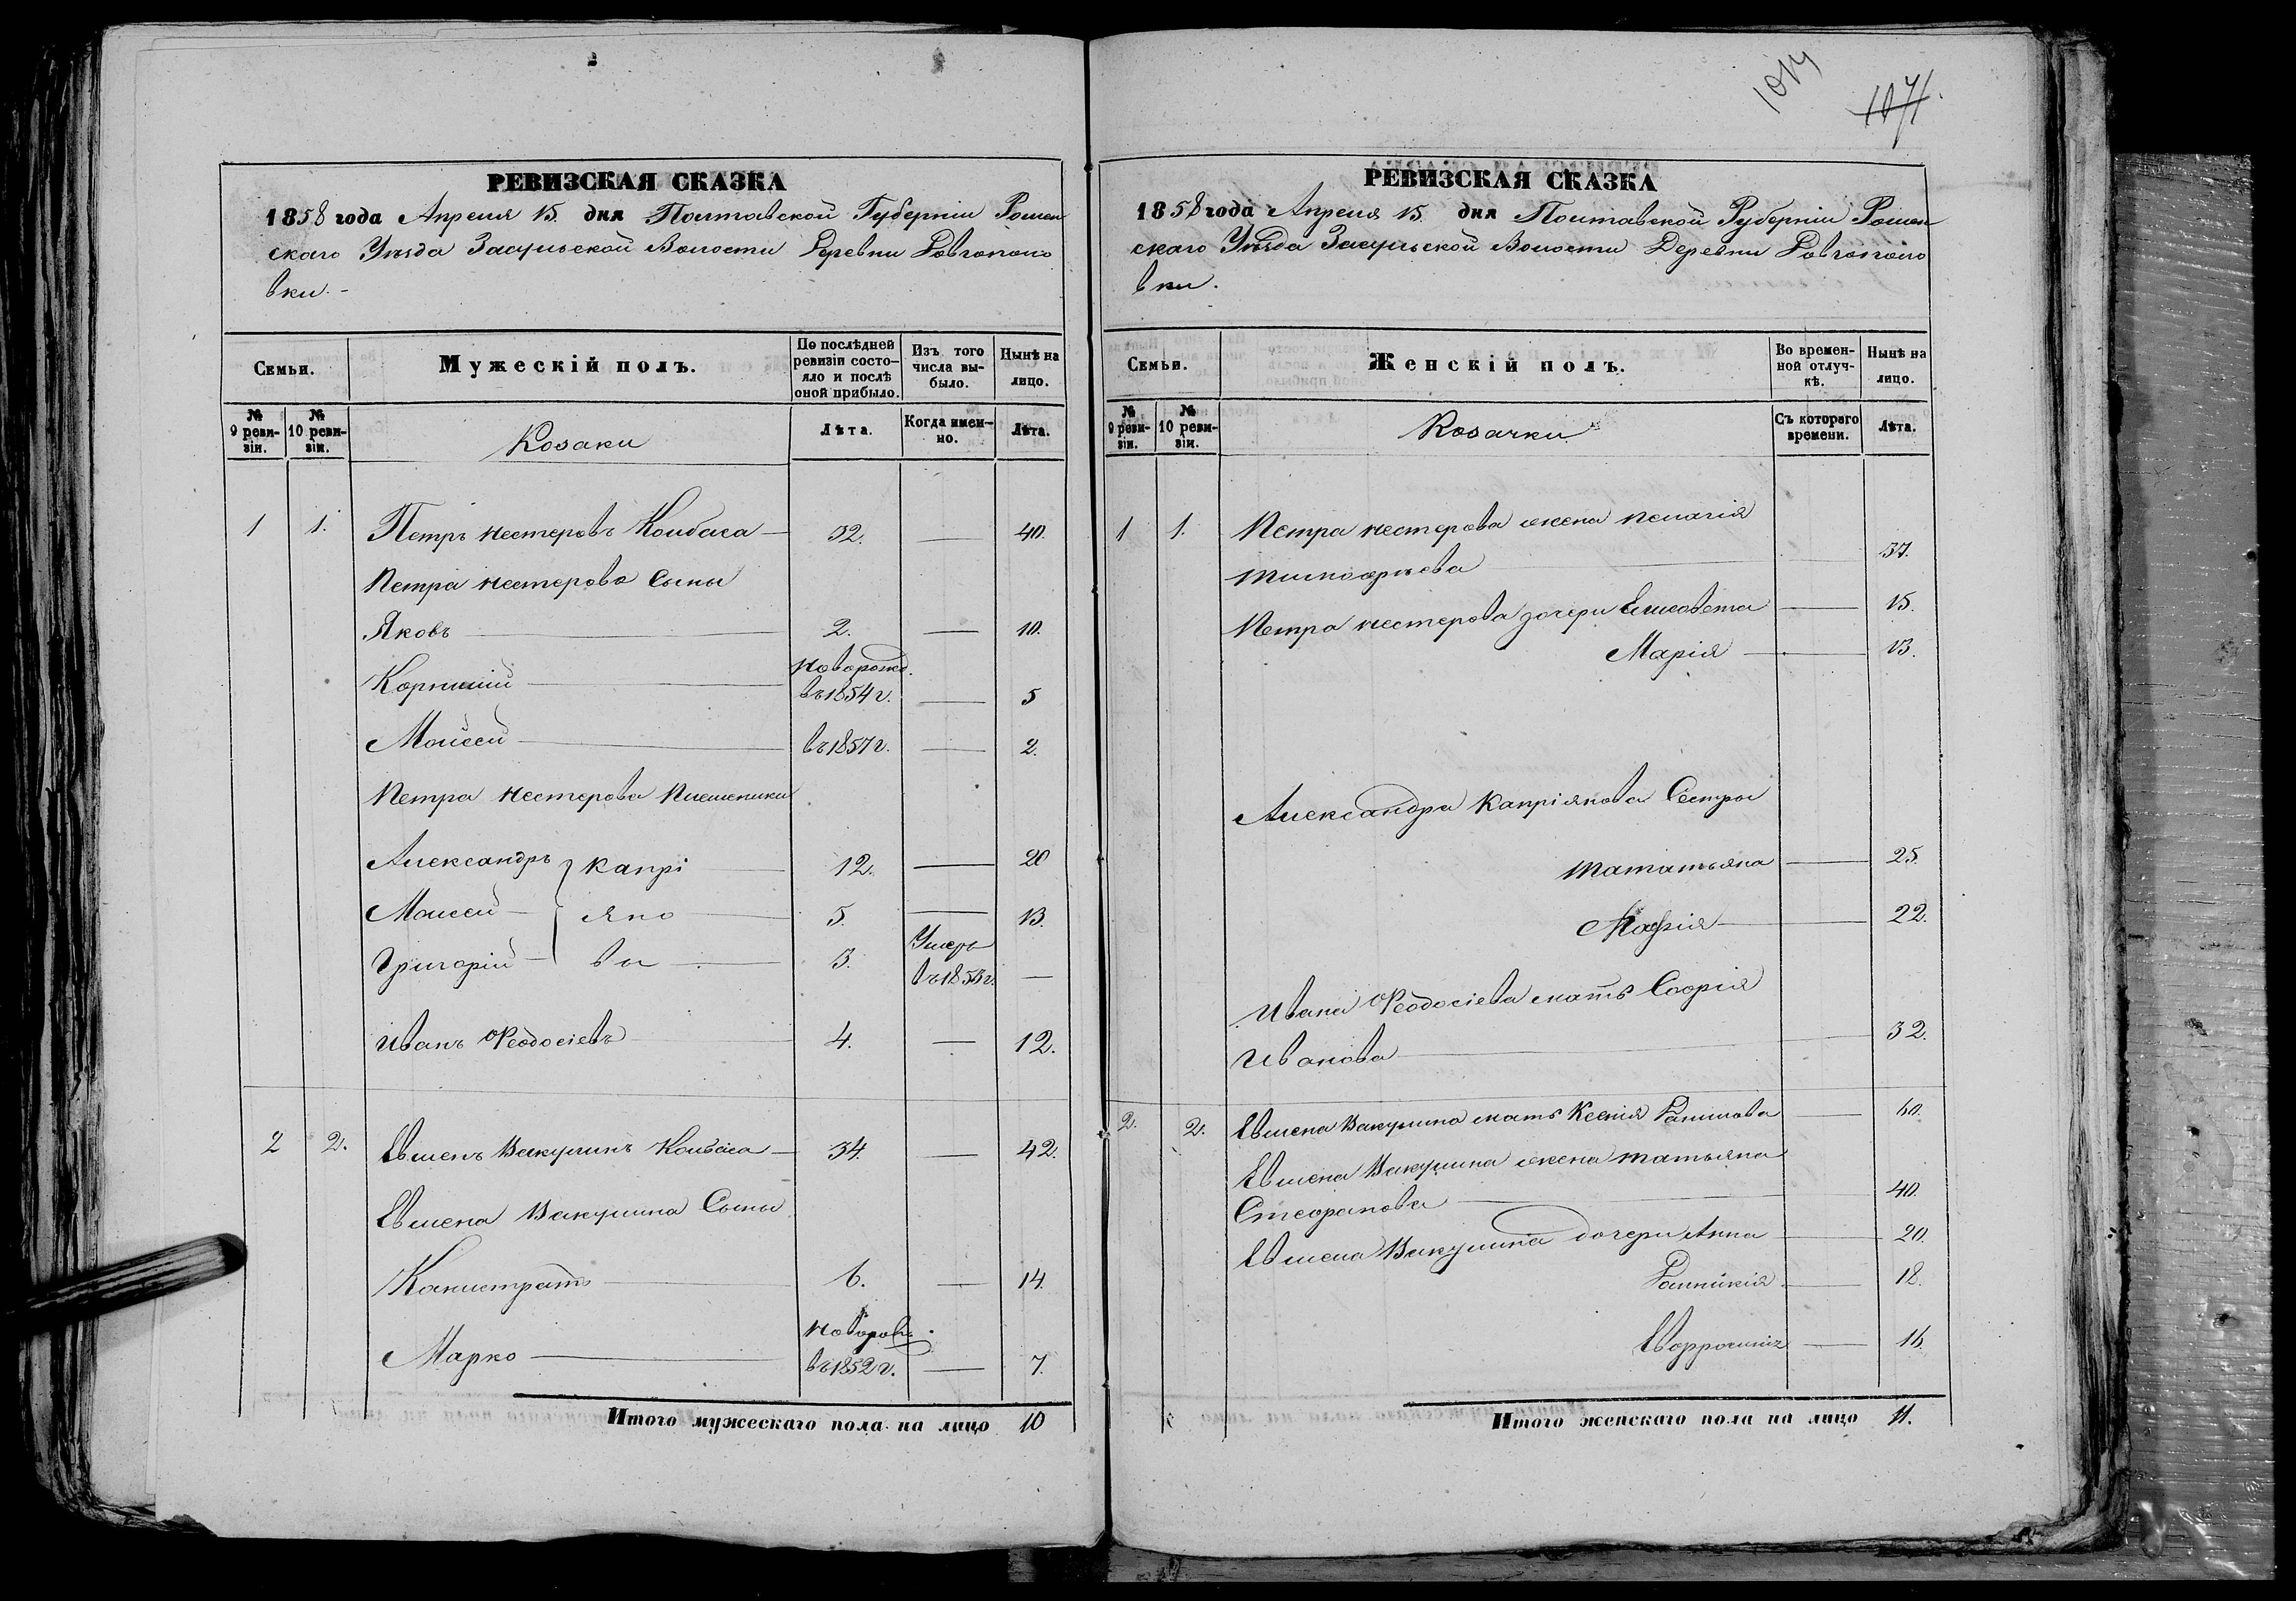 РЕВИЗСКАЯ СКАЗКА
1858 года Апреля 15. дня Полтавской Губерніи Ромен
скаго Уѣзда Засульской Волости Деревни Довгополо
вки.
Семьи.
Мужескій полъ.
По послѣдней ревизіи состо-
яло и послѣ
оной прибыло.
Изъ того
числа вы-
было.
Нынѣ на
лицо.
№
9 реви-
зіи.
№
10 реви-
зіи.
Козаки
Лѣта.
Когда имен-
но.
Лѣта.
1 1. Петръ Нестеровъ Колбаса 32. 40.
Петра Нестерова Сыны
Яковъ 2. 10.
Корнилій Новорожд. въ 1854 г. 5
Мойсей въ 1857 г. 2.
Петра Нестерова Племеники
Александръ Капрі 12. 20
Моисей яно 5. 13.
Григорій вы 3. Умеръ въ 1853 г.
Иванъ Феодосіевъ 4. 12.
2 2. Евменъ Вакулинъ Колбаса 34. 42.
Евмена Вакулина Сыны
Калистратъ 6. 14.
Марко Новорож. въ 1852 г. 7.
Итого мужескаго пола на лицо 10
1014
1071.
РЕВИЗСКАЯ СКАЗКА
1858 года Апреля 15. дня Полтавской Губерніи Ромен
скаго Уѣзда Засульской Волости Деревни Довгополо
вки.
Семьи.
Женскій полъ.
Во времен-
ной отлуч-
кѣ.
Нынѣ на
лицо.
№
9 реви-
зіи.
№
10 реви-
зіи.
Козачки
Съ котораго
времени.
Лѣта.
1 1. Петра Нестерова жена Пелагія
Тимофѣева 37.
Петра Нестерова дочери Елисавета 15.
Марія 13.
Александра Капріянова Сестры
Тататьяна 25.
Марія 22.
Ивана Феодосіева мать Софія
Иванова 32.
2. 2. Евмена Вакулина мать Ксенія Данилова 60.
Евмена Вакулина жена Татьяна
Стефанова 40.
Евмена Вакулина дочери Анна 20.
18.
Евфросинія 16.
Итого женскаго пола на лицо 11.